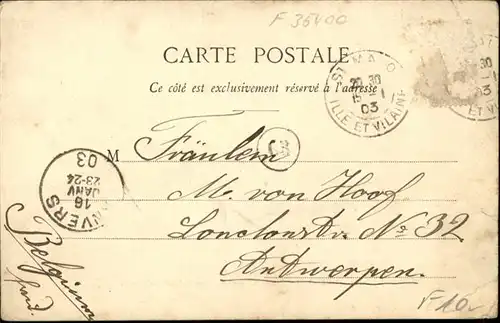 F 35400
CARTE POSTALE
Ce côté est exclusivement réservé à l'adresse
ST MALO
20 30
15 -1
03
ILLE ET VILAINE
30
03
ET VILAINE
M Fräulein
M. von Hoof
N° 32
Antwerpen.
ANVERS
16
JANV
23-24
03
Belgium
F10.-